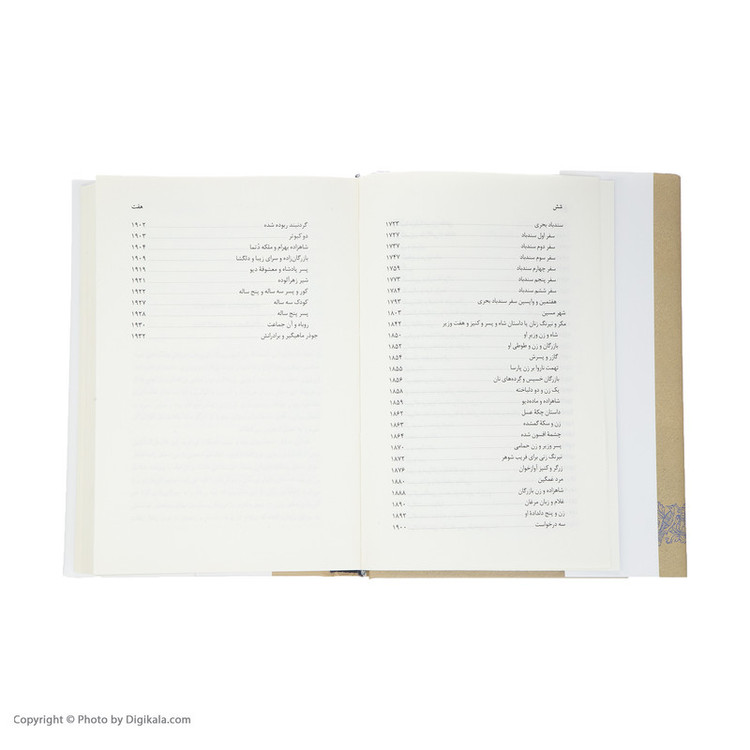 شش
سندباد بحری ۱۷۲۳
سفر اول سندباد ۱۷۲۷
سفر دوم سندباد ۱۷۳۷
سفر سوم سندباد ۱۷۴۷
سفر چهارم سندباد ۱۷۵۹
سفر پنجم سندباد ۱۷۷۳
سفر ششم سندباد ۱۷۸۴
هفتمین و واپسین سفر سندباد بحری ۱۷۹۳
شهر مسین ۱۸۰۳
مکر و نیرنگ زنان یا داستان شاه و پسر و کنیز و هفت وزیر ۱۸۴۲
شاه و زن وزیر او ۱۸۵۰
بازرگان و زن و طوطی او ۱۸۵۲
گازر و پسرش ۱۸۵۴
تهمت ناروا بر زن پارسا ۱۸۵۵
بازرگان خسیس و گرده‌های نان ۱۸۵۶
یک زن و دو دلباخته ۱۸۵۸
شاهزاده و ماده‌دیو ۱۸۵۹
داستان چکهٔ عسل ۱۸۶۲
زن و سکهٔ گمشده ۱۸۶۳
چشمهٔ افسون شده ۱۸۶۴
پسر وزیر و زن حمامی ۱۸۷۰
نیرنگ زنی برای فریب شوهر ۱۸۷۲
زرگر و کنیز آوازخوان ۱۸۷۶
مرد غمگین ۱۸۸۰
شاهزاده و زن بازرگان ۱۸۸۸
غلام و زبان مرغان ۱۸۹۰
زن و پنج دلدادهٔ او ۱۸۹۲
سه درخواست ۱۹۰۰
هفت
گردنبند ربوده شده ۱۹۰۲
دو کبوتر ۱۹۰۳
شاهزاده بهرام و ملکه دُتما ۱۹۰۴
بازرگان‌زاده و سرای زیبا و دلگشا ۱۹۰۹
پسر پادشاه و معشوقهٔ دیو ۱۹۱۹
شیر زهرآلوده ۱۹۲۱
کور و پسر سه ساله و پنج ساله ۱۹۲۲
کودک سه ساله ۱۹۲۷
پسر پنج ساله ۱۹۲۸
روباه و آن جماعت ۱۹۳۰
جوذر ماهیگیر و برادرانش ۱۹۳۲
Copyright © Photo by Digikala.com